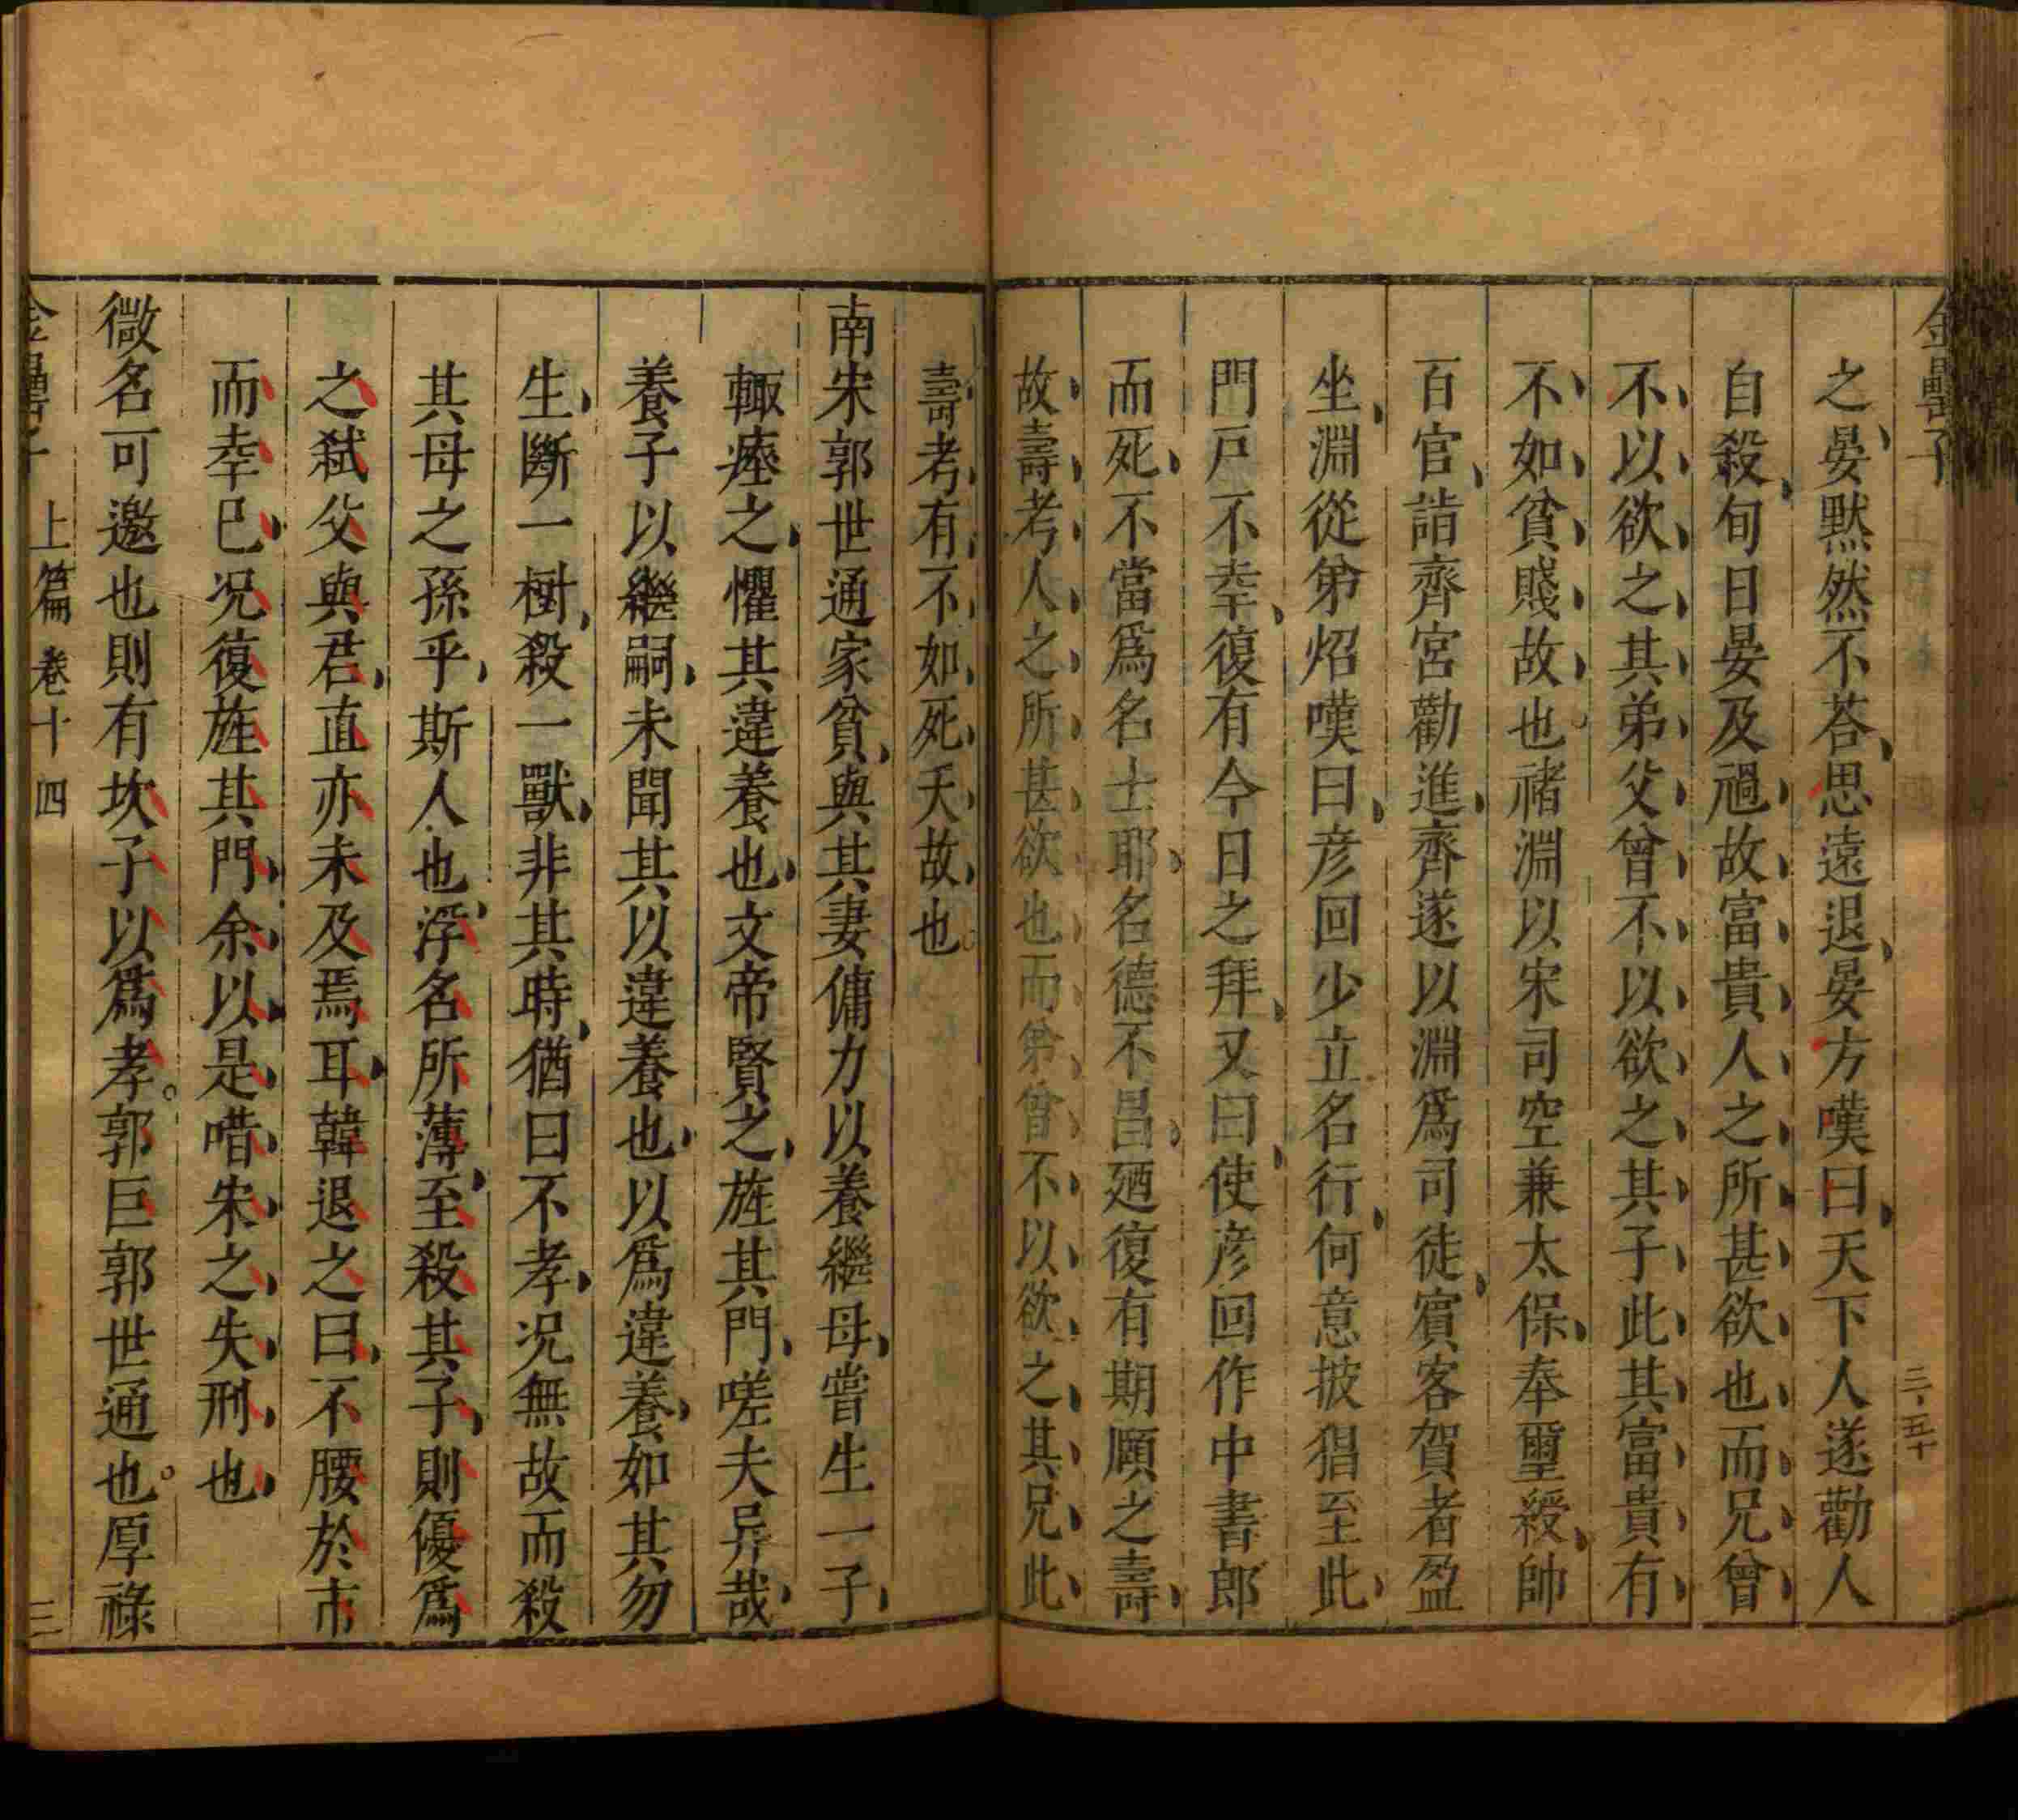 金罍子
三、五十
之晏默然不荅思遠退晏方嘆曰天下人遂勸人
自殺旬日晏及禍故富貴人之所甚欲也而兄曾
不以欲之其弟父曾不以欲之其子此其富貴有
不如貧賤故也禇淵以宋司空兼太保奉璽綬帥
百官詣齊宮勸進齊遂以淵爲司徒賓客賀者盈
坐淵從弟炤嘆曰彦回少立名行何意披猖至此
門戸不幸復有今日之拜又曰使彦回作中書郎
而死不當爲名士耶名德不昌廼復有期願之壽
故壽考人之所甚欲也而弟曾不以欲之其兄此
壽考有不如死夭故也
南宋郭世通家貧與其妻傭力以養繼母嘗生一子
輙瘞之懼其違養也文帝賢之旌其門嗟夫异哉
養子以繼嗣未聞其以違養也以爲違養如其勿
生斷一樹殺一獸非其時猶曰不孝况無故而殺
其母之孫乎斯人也浮名所薄至殺其子則優爲
之弑父與君直亦未及焉耳韓退之曰不腰於市
而幸已况復旌其門余以是唶宋之失刑也
微名可邀也則有坎子以爲孝郭巨郭世通也厚祿
金罍子 上篇 卷十四 三